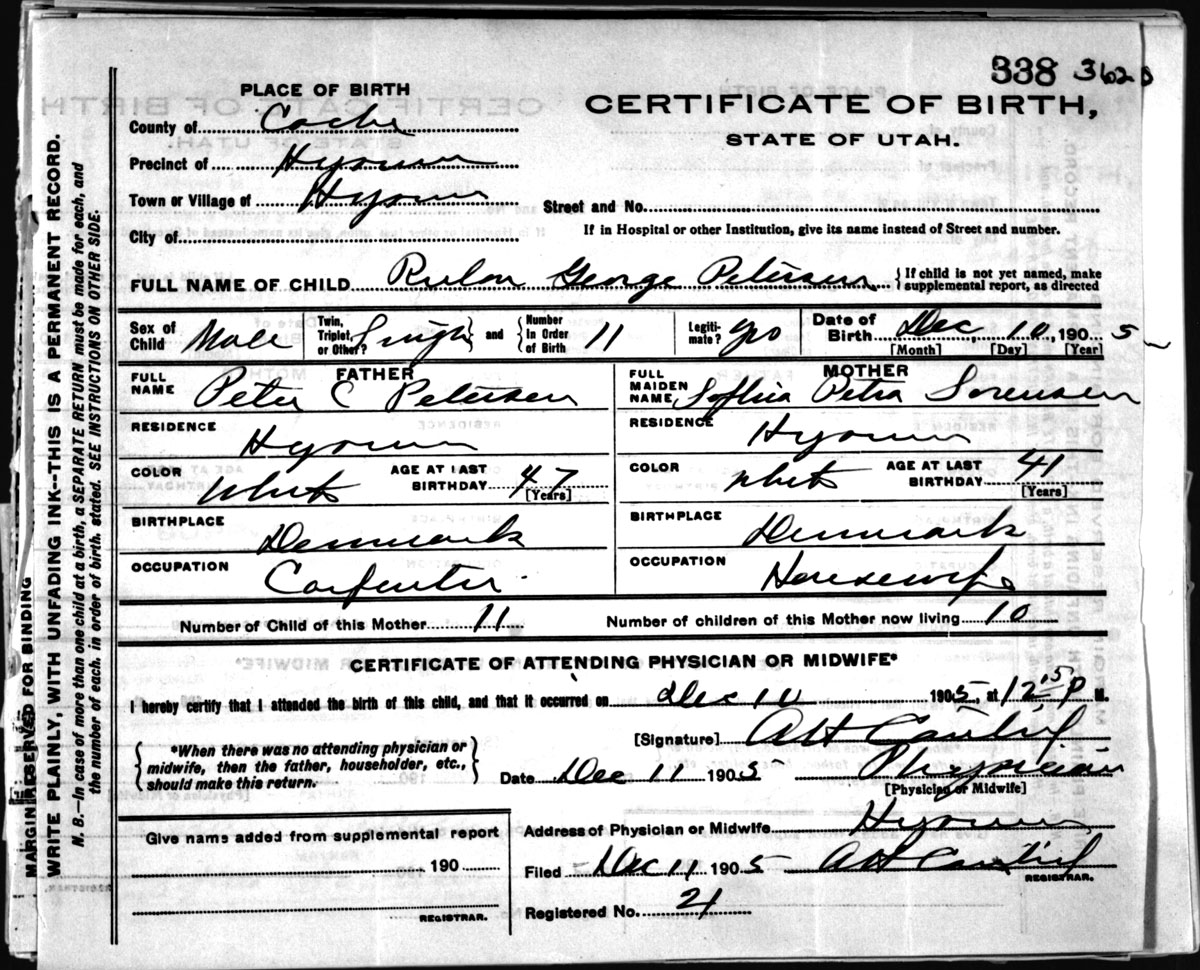 338 3628
PLACE OF BIRTH
CERTIFICATE OF BIRTH,
STATE OF UTAH.
County of Cache
Precinct of Hyrum
Town or Village of Hyrum
Street and No.
City of
If in Hospital or other Institution, give its name instead of Street and number.
FULL NAME OF CHILD Rulon George Petersen { If child is not yet named, make supplemental report, as directed
Sex of Child Male
Twin, Triplet, or Other? Single and { Number in Order of Birth 11
Legitimate? yes
Date of Birth Dec 10, 1905
[Month] [Day] [Year]
FATHER
FULL NAME Peter C Petersen
RESIDENCE Hyrum
COLOR White AGE AT LAST BIRTHDAY 47 [Years]
BIRTHPLACE Denmark
OCCUPATION Carpenter
MOTHER
FULL MAIDEN NAME Petra Sorensen
RESIDENCE Hyrum
COLOR White AGE AT LAST BIRTHDAY 41 [Years]
BIRTHPLACE Denmark
OCCUPATION Housewife
Number of Child of this Mother 11 Number of children of this Mother now living 10
CERTIFICATE OF ATTENDING PHYSICIAN OR MIDWIFE*
I hereby certify that I attended the birth of this child, and that it occurred on Dec 10 1905, at 12 15 P M.
{ *When there was no attending physician or midwife, then the father, householder, etc., should make this return. }
[Signature]
Date Dec 11 1905 Physician
[Physician or Midwife]
Give name added from supplemental report
190
REGISTRAR.
Address of Physician or Midwife Hyrum
Filed Dec 11 1905
REGISTRAR.
Registered No. 21
MARGIN RESERVED FOR BINDING
WRITE PLAINLY, WITH UNFADING INK--THIS IS A PERMANENT RECORD.
N. B.—In case of more than one child at a birth, a SEPARATE RETURN must be made for each, and
the number of each, in order of birth, stated. SEE INSTRUCTIONS ON OTHER SIDE.